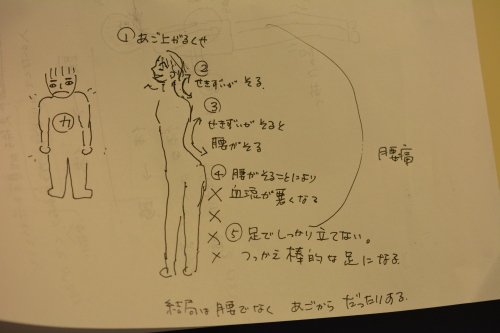 ① あご上がるくせ
②
せきずいが そる。
③
せきずいが そると
腰が そる
④ 腰がそることにより
血流が悪くなる
⑤ 足でしっかり立てない。
つっかえ棒的な足になる
腰痛
力
結局は腰でなく あごから だったりする。